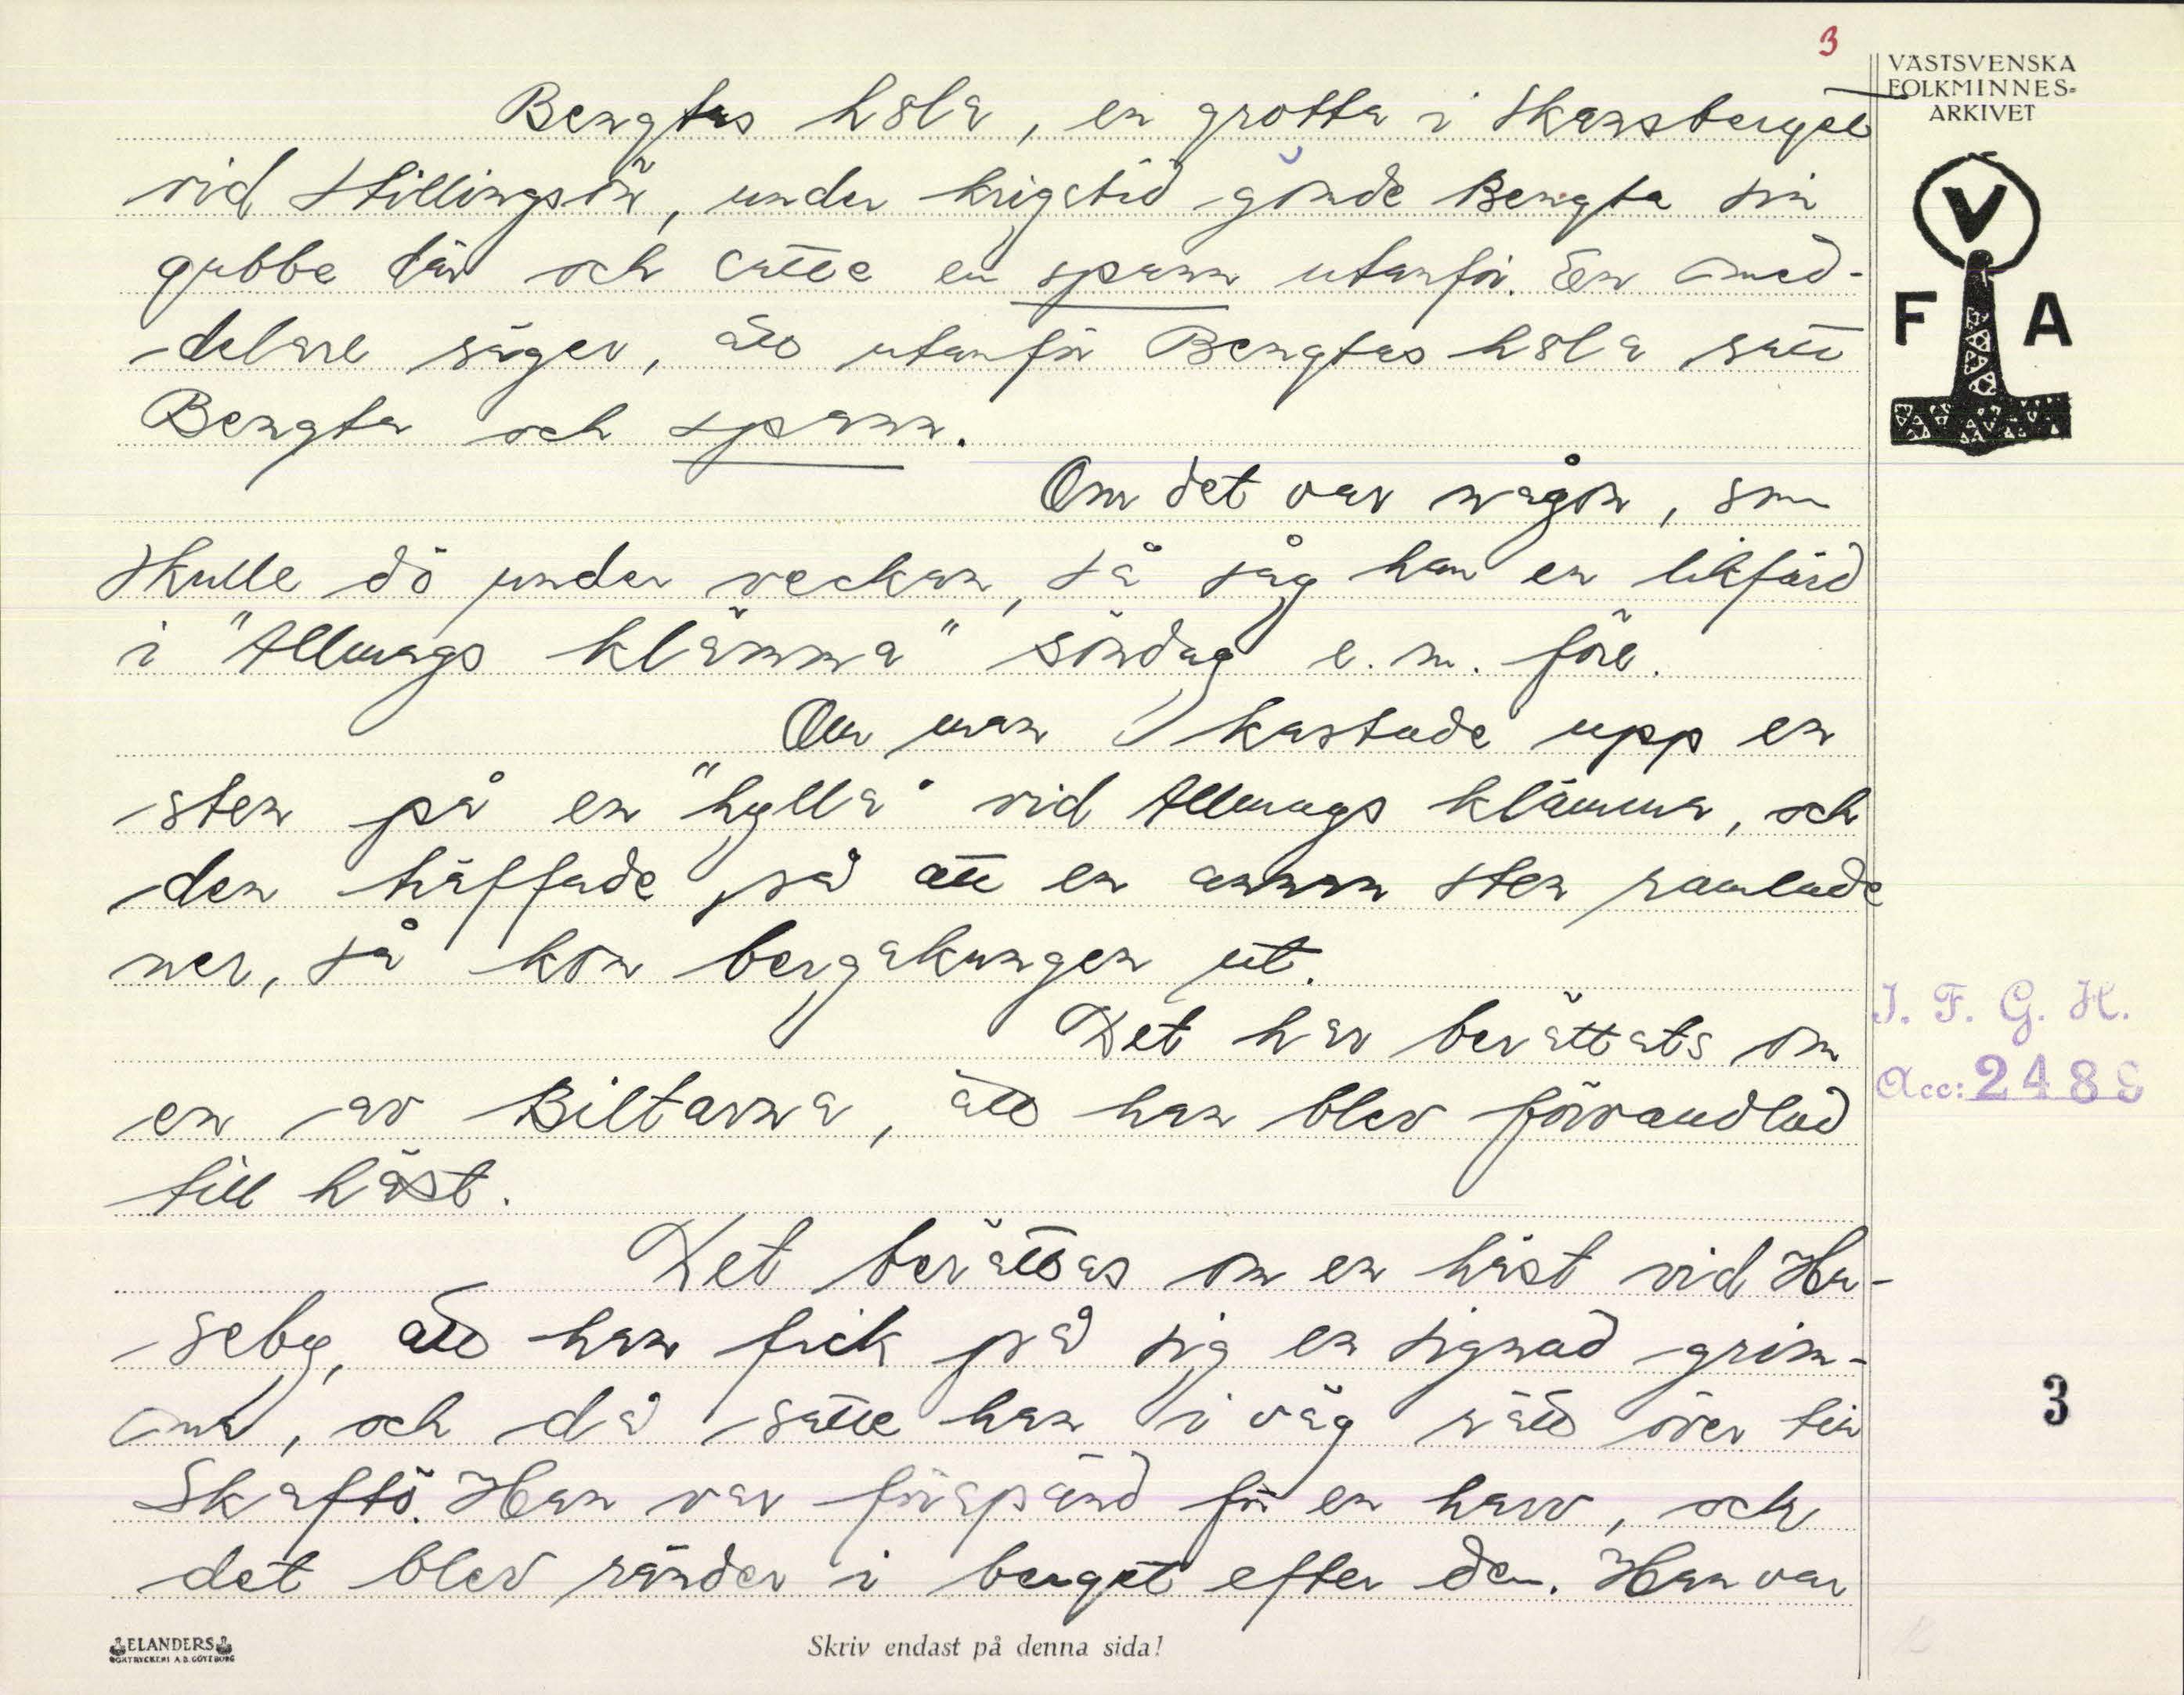 3
VÄSTSVENSKA
FOLKMINNES-
ARKIVET
V
F A
Bengtas håla, en grotta i Skansberget
vid Stillingsön, under krigstid gömde Bengta sin
gubbe där och satte en spann utanför. En med-
delare säger, att utanför Bengtas håla satt
Bengta och spann.
Om det var någon, som
skulle dö under veckan, så såg han en likfärd
i "Allmags klämma" söndag e.m. före.
Om man kastade upp en
sten på en "hylla" vid Allmags klämma, och
den träffade så att en annan sten ramlade
ner, så kom bergakungen ut.
Det har berättats om
en av Biltarna, att han blev förvandlad
till häst.
Det berättas om en häst vid Ha-
seby, att han fick på sig en signad grim-
ma, och då satte han i väg rätt över till
Skaftö. Han var förspänd för en harv, och
det blev ränder i berget efter den. Han var
I. F. G. H.
Acc: 2488
3
ELANDERS
BOKTRYCKERI A.B. GÖTEBORG
Skriv endast på denna sida!